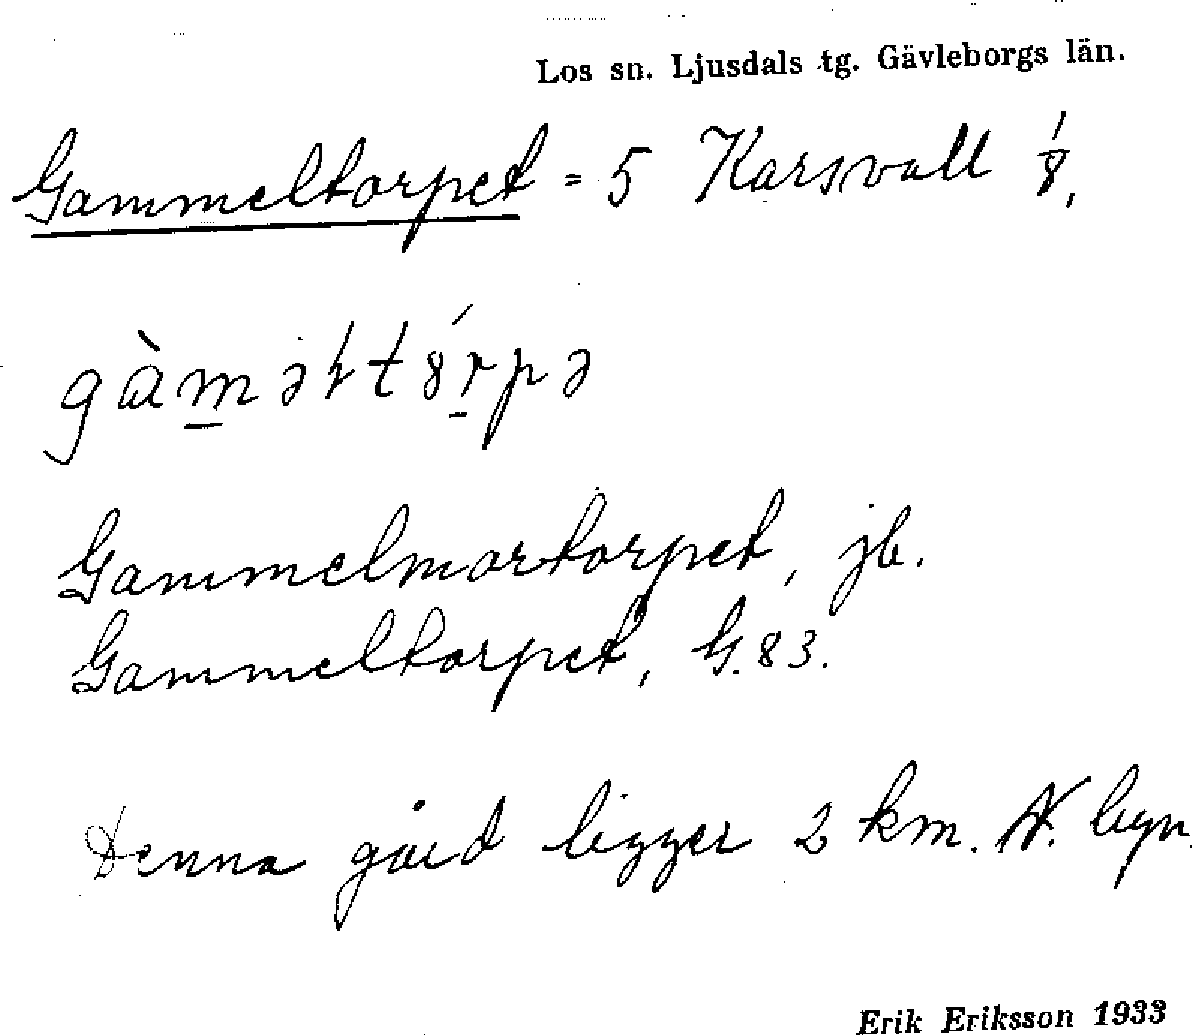 Los sn. Ljusdals tg. Gävleborgs län.
Gammeltorpet = 5 Karsvall 1/8,
gàməɫtȣ́rpə
Gammelmortorpet, jb.
Gammeltorpet, G.83.
Denna gård ligger 2 km. N. byn.
Erik Eriksson 1933